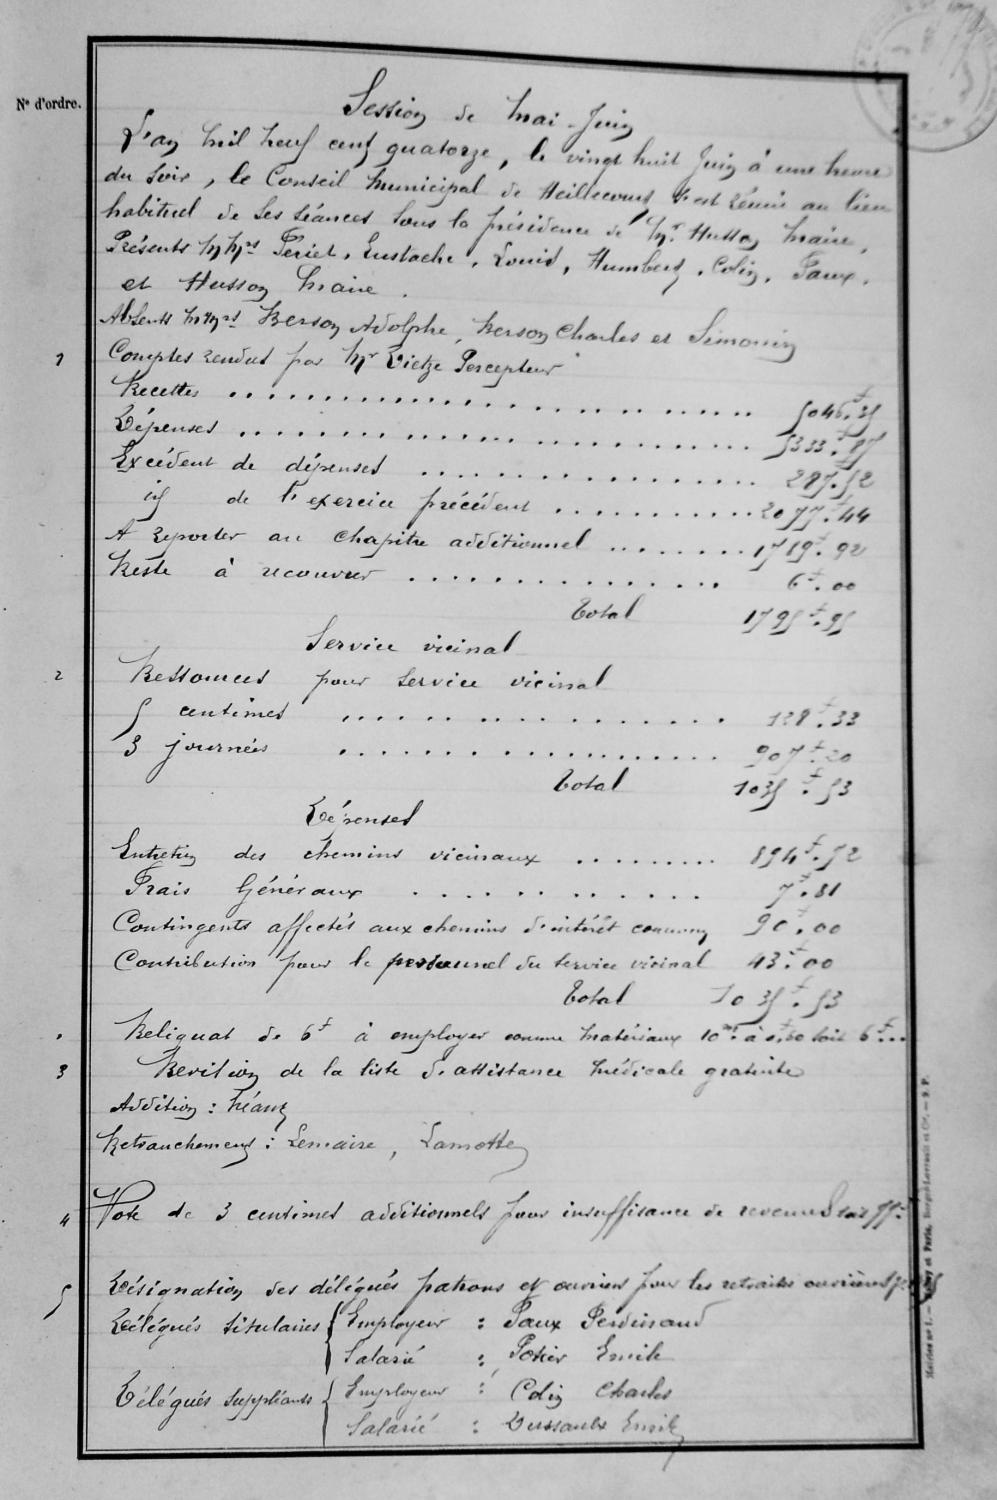 N° d'ordre.
Session de Mai-Juin
L'an mil neuf cent quatorze, le vingt huit Juin à une heure
du soir, le Conseil Municipal de Heillecourt s'est réuni au lieu
habituel de ses séances sous la présidence de Mr Husson Maire,
Présents MMrs Feriet, Eustache, Louis, Humbert, Colin, Faux,
et Husson Maire.
Absents MMrs Kerson Adolphe, Kerson Charles et Simonin
1 Comptes rendus par Mr Dietze Percepteur
Recettes 5046f.35
Dépenses 5333f.87
Excédent de dépenses 287f.52
id de l'exercice précédent 2077f.44
A reporter au chapitre additionnel 1789f.92
Reste à recouvrer 6f.00
Total 1795f.95
Service vicinal
2 Ressources pour service vicinal
5 centimes 128f.33
3 journées 907f.20
Total 1035f.53
Dépenses
Entretien des chemins vicinaux 894f.72
Frais Généraux 7f.81
Contingents affectés aux chemins d'intérêt commun 90f.00
Contribution pour le personnel du service vicinal 43f.00
Total 1035f.53
Reliquat de 6f à employer comme matériaux 10m à 0f,60 soit 6f
3 Revision de la liste d'assistance médicale gratuite
Addition : Néant
Retranchement : Lemaire, Lamotte
4 Vote de 3 centimes additionnels pour insuffisance de revenus
5 Désignation des délégués patrons et ouvriers pour les retraites ouvrières
Délégués titulaires { Employeur : Faux Ferdinand
Salarié : Potier Emile
Délégués suppléants { Employeur : Colin Charles
Salarié : Dussaulx Emile